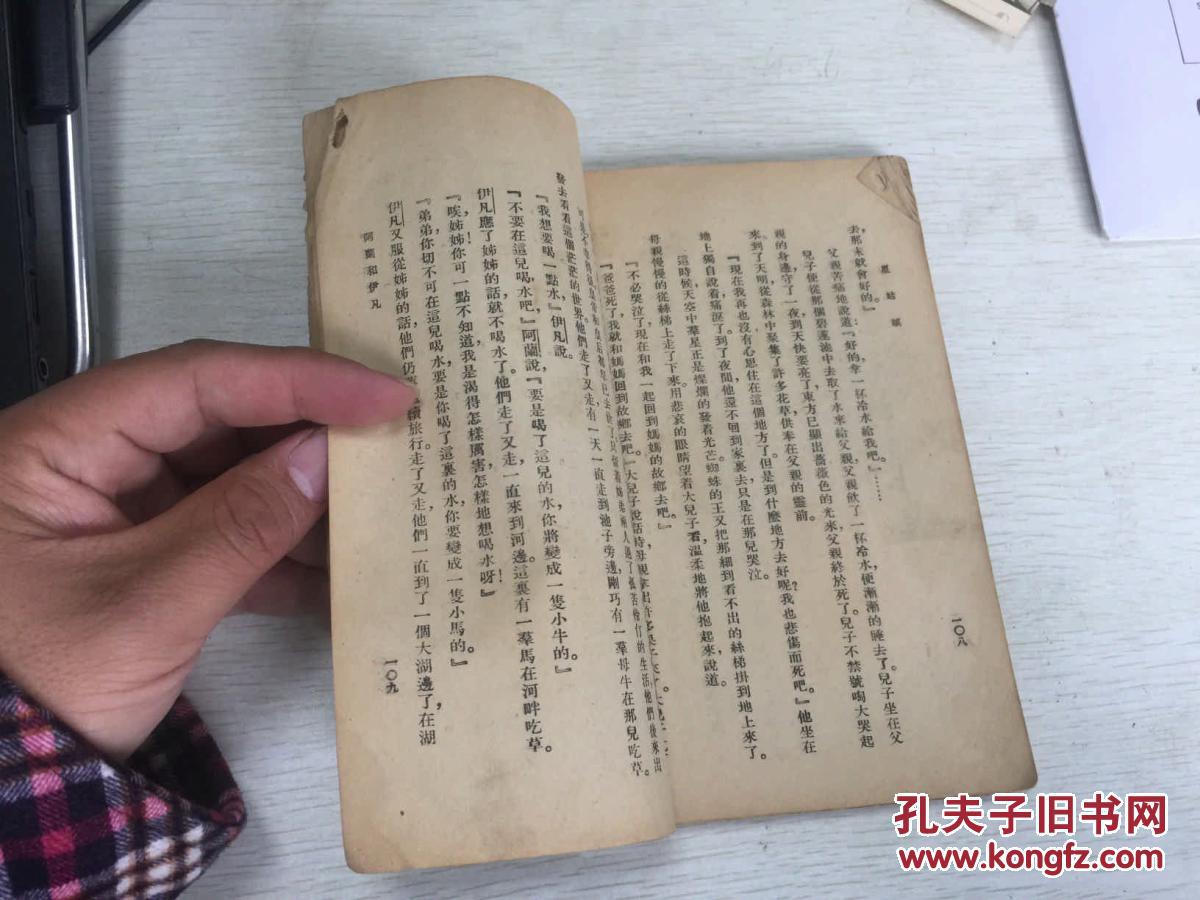 去,那末就會好的。』
父親苦痛地說道:『好的,拿一杯冷水給我吧。』……
兒子便從那個碧蓮池中去取了水來給父親,父親飲了一杯冷水,便漸漸的睡去了。兒子坐在父
親的身邊,守了一夜,到天快要亮了,東方已顯出薔薇色的光來,父親終於死了。兒子不禁號啕大哭起
來,到了天明,從森林中采集了許多花草,供奉在父親的靈前。
『現在我再也沒有心思住在這個地方了,但是到什麼地方去好呢?我也悲傷而死吧。』他坐在
地上獨自說着,痛淚了。到了夜間,他還不回到家裏去,只是在那兒哭泣。
這時候,天空中羣星正是燦爛的發着光芒,蜘蛛的王又把那細到看不出的絲梯掛到地上來了。
母親慢慢的從絲梯上走了下來,用悲哀的眼睛望着大兒子看,溫柔地將他抱起來說道。
『不必哭泣了,現在和我一起回到媽媽的故鄉去吧。』
『爸爸死了,我就和媽媽回到故鄉去吧。』大兒子說話時,
一〇八
發去看看這個茫茫的世界。他們走了又走,有一天,一直走到池子旁邊,剛巧有一羣母牛在那兒吃草。
『我想要喝一點水,』伊凡說。
『不要在這兒喝水吧,』阿蘭說,『要是喝了這兒的水,你將變成一隻小牛的。』
伊凡應了姊姊的話,就不喝水了。他們走了又走,一直來到河邊。這裏有一羣馬在河畔吃草。
『唉,姊姊,你可一點不知道我是渴得怎樣厲害,怎樣地想喝水呀!』
『弟弟,你切不可在這兒喝水,要是你喝了這裏的水,你要變成一隻小馬的。』
伊凡又服從姊姊的話,他們仍續旅行。走了又走,他們一直到了一個大湖邊了,在湖
阿蘭和伊凡
一〇九
孔夫子旧书网
www.kongfz.com